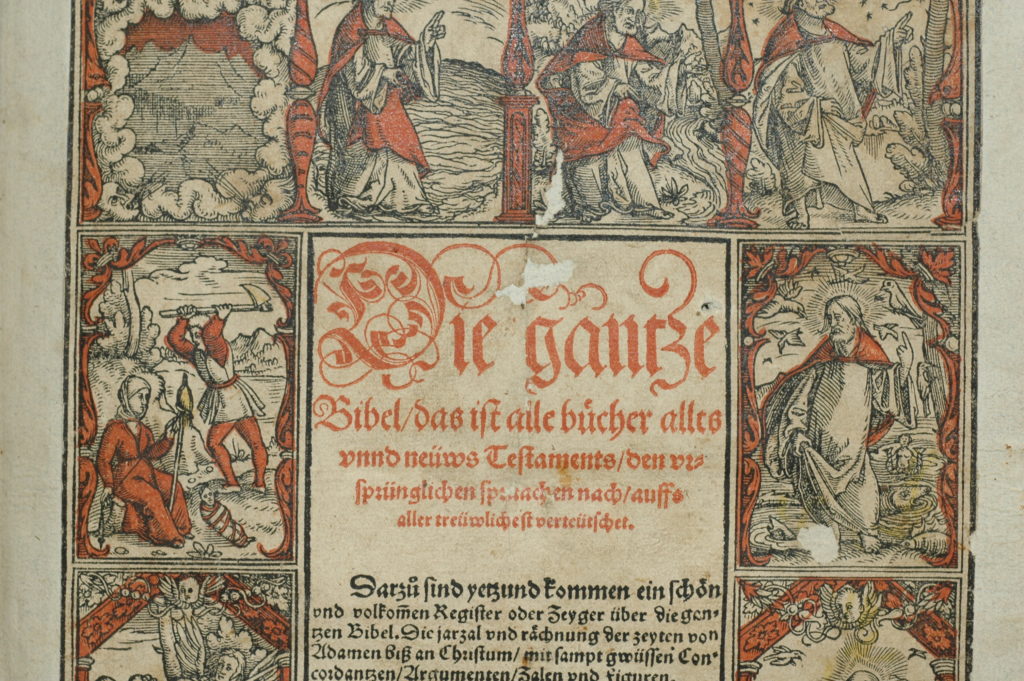 Die gantze
Bibel/das ist alle bůcher allts
vnnd neüws Testaments/den vr-
sprünglichen spraachen nach/auffs
aller treüwlichest verteütschet.
Darzů sind yetzund kommen ein schön
vnd volkom̃en Register oder Zeyger über die gan-
tzen Bibel. Die jarzal vnd råchnung der zeyten von
Adamen biß an Christum/ mit sampt gwüssen Con-
cordantzen/Argumenten/Zalen vnd Figuren.